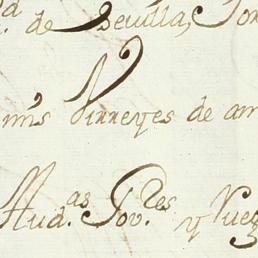 de Sevilla,
mis Virreyes de am
Aud.as Gov.res y Juez